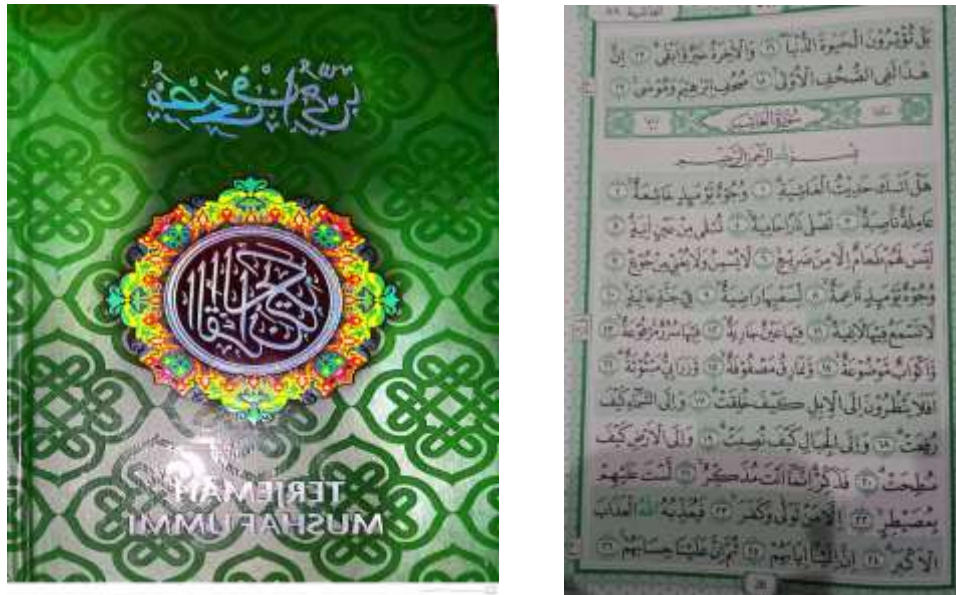 القرآن الكريم
TERJEMAH
MUSHAF UMMI
بَلْ تُؤْثِرُونَ الْحَيٰوةَ الدُّنْيَا ۝١٦ وَالْاٰخِرَةُ خَيْرٌ وَّاَبْقٰى ۝١٧ اِنَّ
هٰذَا لَفِى الصُّحُفِ الْاُوْلٰى ۝١٨ صُحُفِ اِبْرٰهِيْمَ وَمُوْسٰى ۝١٩
سُوْرَةُ الْغَاشِيَةِ
بِسْمِ اللّٰهِ الرَّحْمٰنِ الرَّحِيْمِ
هَلْ اَتٰىكَ حَدِيْثُ الْغَاشِيَةِ ۝١ وُجُوْهٌ يَّوْمَئِذٍ خَاشِعَةٌ ۝٢
عَامِلَةٌ نَّاصِبَةٌ ۝٣ تَصْلٰى نَارًا حَامِيَةً ۝٤ تُسْقٰى مِنْ عَيْنٍ اٰنِيَةٍ ۝٥
لَيْسَ لَهُمْ طَعَامٌ اِلَّا مِنْ ضَرِيْعٍ ۝٦ لَّا يُسْمِنُ وَلَا يُغْنِيْ مِنْ جُوْعٍ ۝٧
وُجُوْهٌ يَّوْمَئِذٍ نَّاعِمَةٌ ۝٨ لِّسَعْيِهَا رَاضِيَةٌ ۝٩ فِيْ جَنَّةٍ عَالِيَةٍ ۝١٠
لَّا تَسْمَعُ فِيْهَا لَاغِيَةً ۝١١ فِيْهَا عَيْنٌ جَارِيَةٌ ۝١٢ فِيْهَا سُرُرٌ مَّرْفُوْعَةٌ ۝١٣
وَّاَكْوَابٌ مَّوْضُوْعَةٌ ۝١٤ وَّنَمَارِقُ مَصْفُوْفَةٌ ۝١٥ وَّزَرَابِيُّ مَبْثُوْثَةٌ ۝١٦
اَفَلَا يَنْظُرُوْنَ اِلَى الْاِبِلِ كَيْفَ خُلِقَتْ ۝١٧ وَاِلَى السَّمَاۤءِ كَيْفَ
رُفِعَتْ ۝١٨ وَاِلَى الْجِبَالِ كَيْفَ نُصِبَتْ ۝١٩ وَاِلَى الْاَرْضِ كَيْفَ
سُطِحَتْ ۝٢٠ فَذَكِّرْ اِنَّمَآ اَنْتَ مُذَكِّرٌ ۝٢١ لَّسْتَ عَلَيْهِمْ
بِمُصَيْطِرٍ ۝٢٢ اِلَّا مَنْ تَوَلّٰى وَكَفَرَ ۝٢٣ فَيُعَذِّبُهُ اللّٰهُ الْعَذَابَ
الْاَكْبَرَ ۝٢٤ اِنَّ اِلَيْنَآ اِيَابَهُمْ ۝٢٥ ثُمَّ اِنَّ عَلَيْنَا حِسَابَهُمْ ۝٢٦